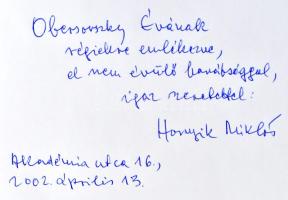 Obersovszky Évának
régiekre emlékezve,
el nem évülő barátsággal,
igaz szeretettel:
Hornyik Miklós
Akadémia utca 16.,
2002. április 13.